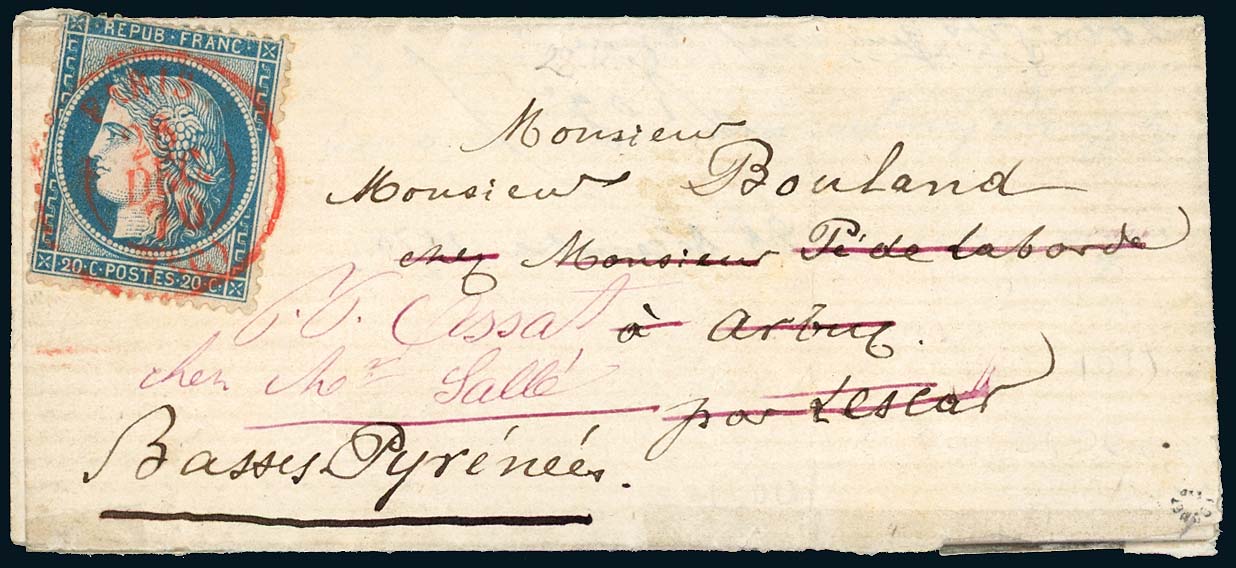 REPUB · FRANC ·
PARIS
20 · C · POSTES · 20 · C
Monsieur
Monsieur Bouland
chez Monsieur Pé de laborde
à Artix.
par Lescar
Assat
chez Mr Sallé
Basses Pyrénées.